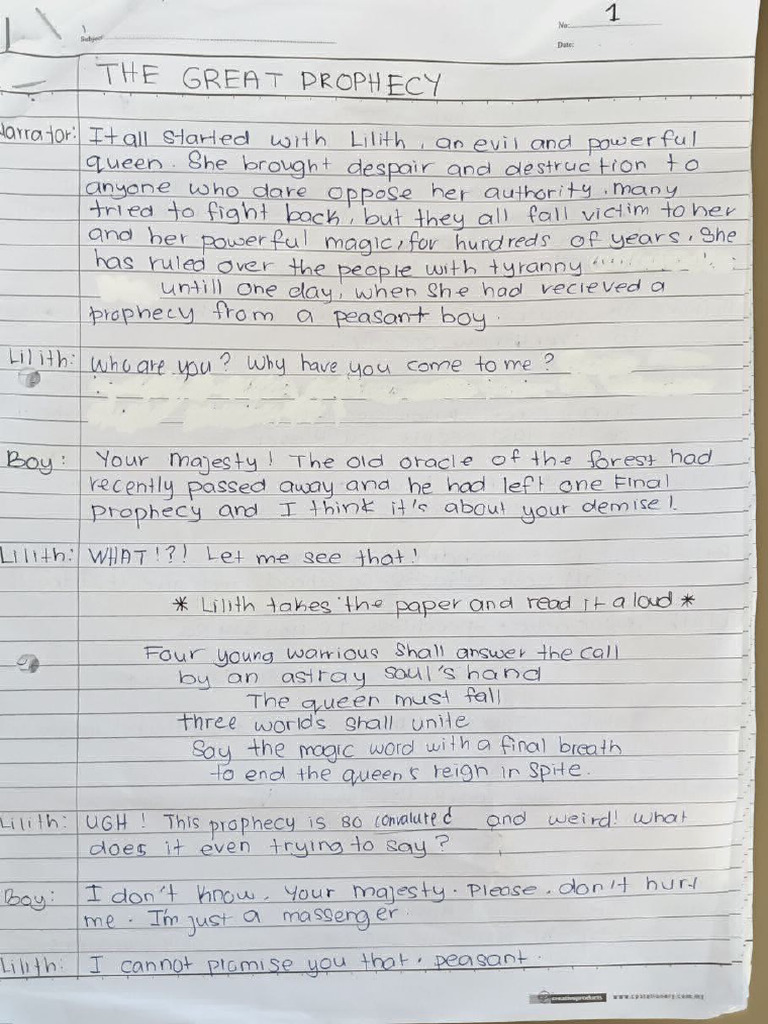 1
No:
Subject:
Date:
THE GREAT PROPHECY
Narrator: It all started with Lilith, an evil and powerful
queen. She brought despair and destruction to
anyone who dare oppose her authority, many
tried to fight back, but they all fall victim to her
and her powerful magic, for hundreds of years, She
has ruled over the people with tyranny
untill one day, when She had recieved a
prophecy from a peasant boy.
Lilith: Who are you? Why have you come to me?
Boy: Your Majesty! The old oracle of the forest had
recently passed away and he had left one Final
prophecy and I think it's about your demise!
Lilith: WHAT!?! Let me see that!
* Lilith takes the paper and read it aloud *
Four young warrious shall answer the call
by an astray soul's hand
The queen must fall
three worlds shall unite
Say the magic word with a final breath
to end the queen's reign in Spite.
Lilith: UGH! This prophecy is so convaluted and weird! what
does it even trying to say?
Boy: I don't know, Your majesty. Please, don't hurt
me. I'm just a massenger.
Lilith: I cannot promise you that, peasant.
creativeproducts www.cpstationery.com.my